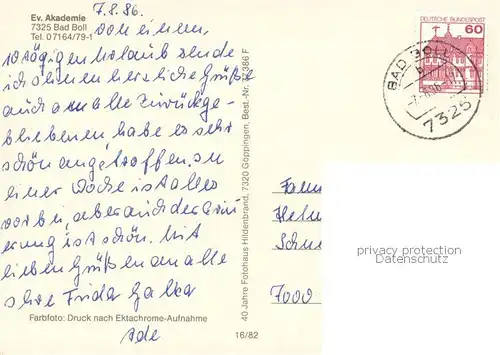 Ev. Akademie
7325 Bad Boll
Tel. 07164/79-1
7.8.86.
von einem
10 tägigen Urlaub sende
ich Ihnen herzliche Grüße
auch an alle zurückge-
bliebenen, habe es sehr
schön angetroffen. In
einer Woche ist alles
vorbei, aber auch der
ist schön. Mit
lieben Grüßen an alle
Ihre Frida
Farbfoto: Druck nach Ektachrome-Aufnahme
16/82
40 Jahre Fotohaus Hildenbrand, 7320 Göppingen, Best.-Nr. 7386 F
DEUTSCHE BUNDESPOST
60
BAD BOLL
7325
Fam
Helm
7000
privacy protection
Datenschutz